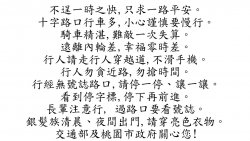 不逞一時之快,只求一路平安。
十字路口行車多,小心謹慎要慢行。
騎車精湛,難敵一次失算。
遠離內輪差,幸福零時差。
行人請走行人穿越道,不滑手機。
行人勿貪近路,勿搶時間。
行經無號誌路口,請停一停、讓一讓。
看到停字標,停下再前進。
長輩注意行,過路口要看號誌。
銀髮族清晨、夜間出門,請穿亮色衣物。
交通部及桃園市政府關心您!